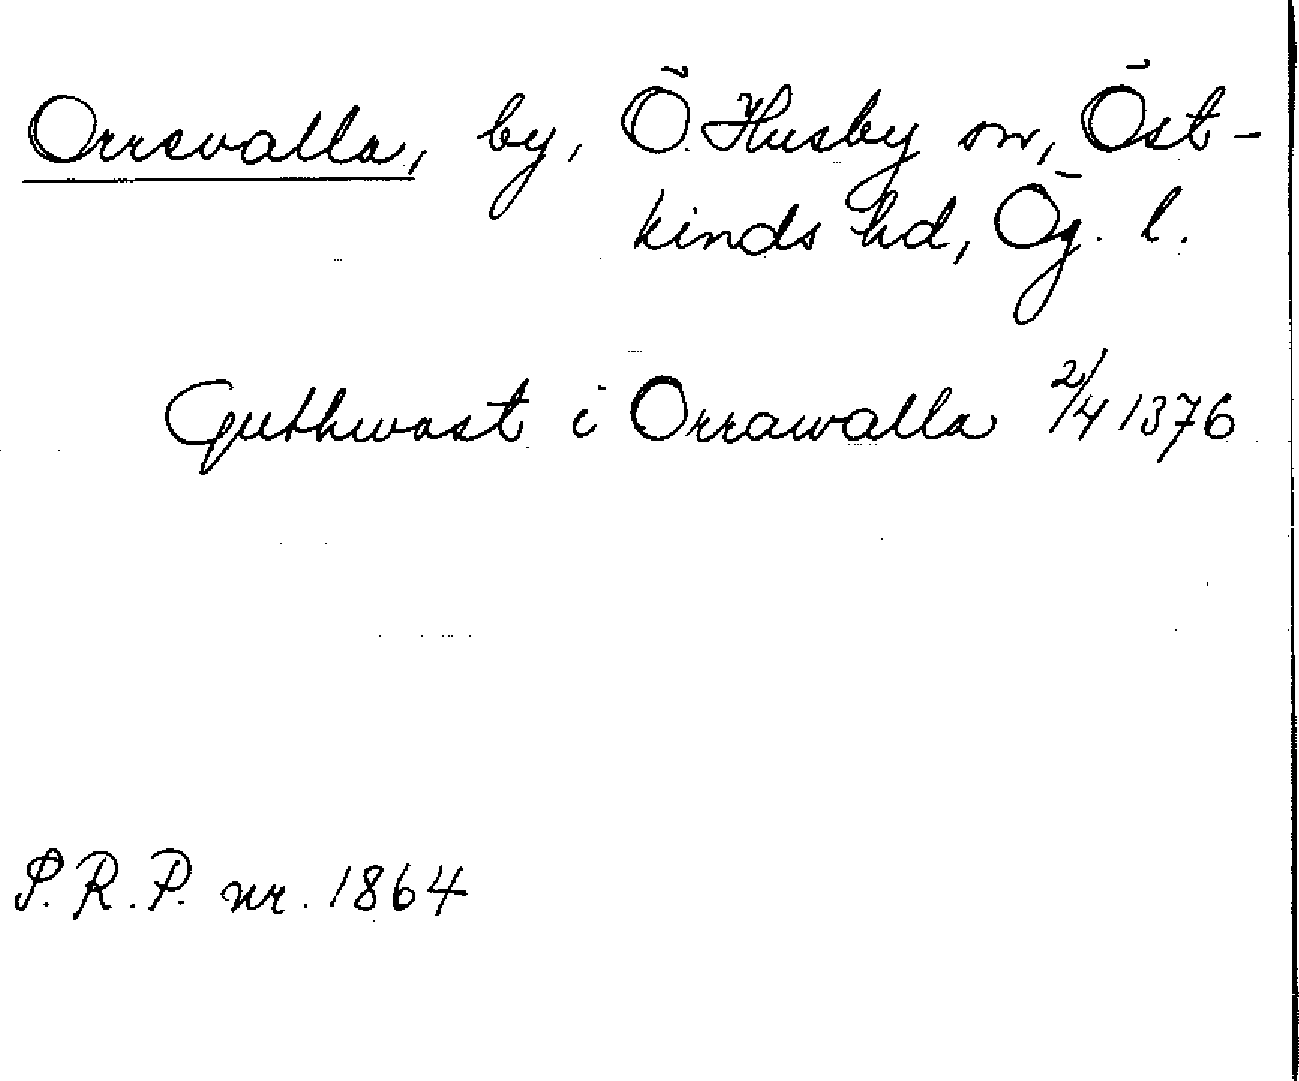 Orrevalla, by, Ö. Husby sn, Öst-
kinds hd, Ög. l.
Guthwast i Orrawalla 2/4 1376
S.R.P. nr. 1864